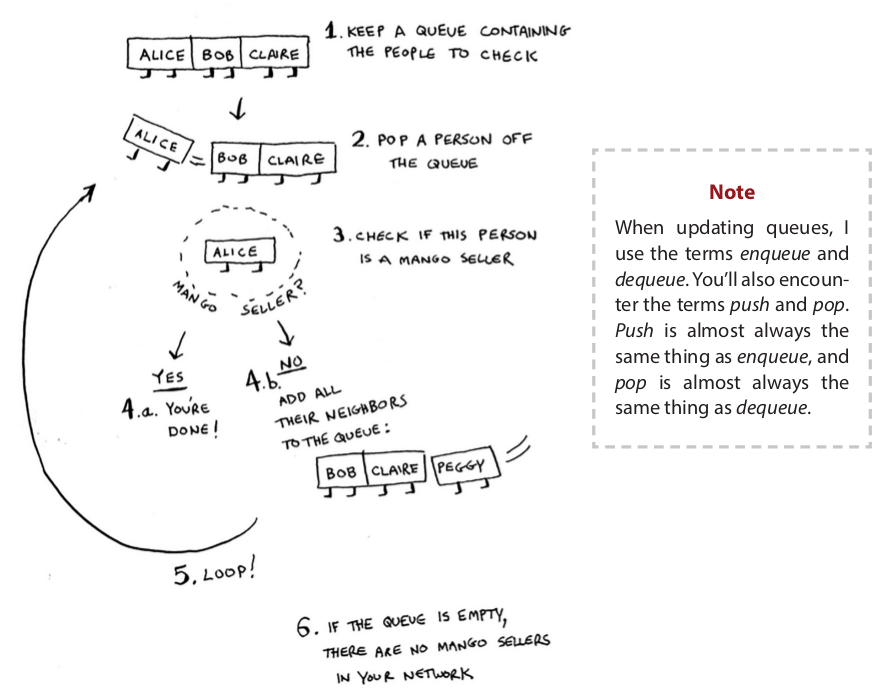 1. KEEP A QUEUE CONTAINING
THE PEOPLE TO CHECK
ALICE BOB CLAIRE
ALICE = BOB CLAIRE
2. POP A PERSON OFF
THE QUEUE
3. CHECK IF THIS PERSON
IS A MANGO SELLER
ALICE
MANGO SELLER?
YES
4.a. YOU'RE
DONE!
NO
4.b.
ADD ALL
THEIR NEIGHBORS
TO THE QUEUE:
BOB CLAIRE PEGGY
5. LOOP!
6. IF THE QUEUE IS EMPTY,
THERE ARE NO MANGO SELLERS
IN YOUR NETWORK
Note
When updating queues, I
use the terms enqueue and
dequeue. You'll also encoun-
ter the terms push and pop.
Push is almost always the
same thing as enqueue, and
pop is almost always the
same thing as dequeue.